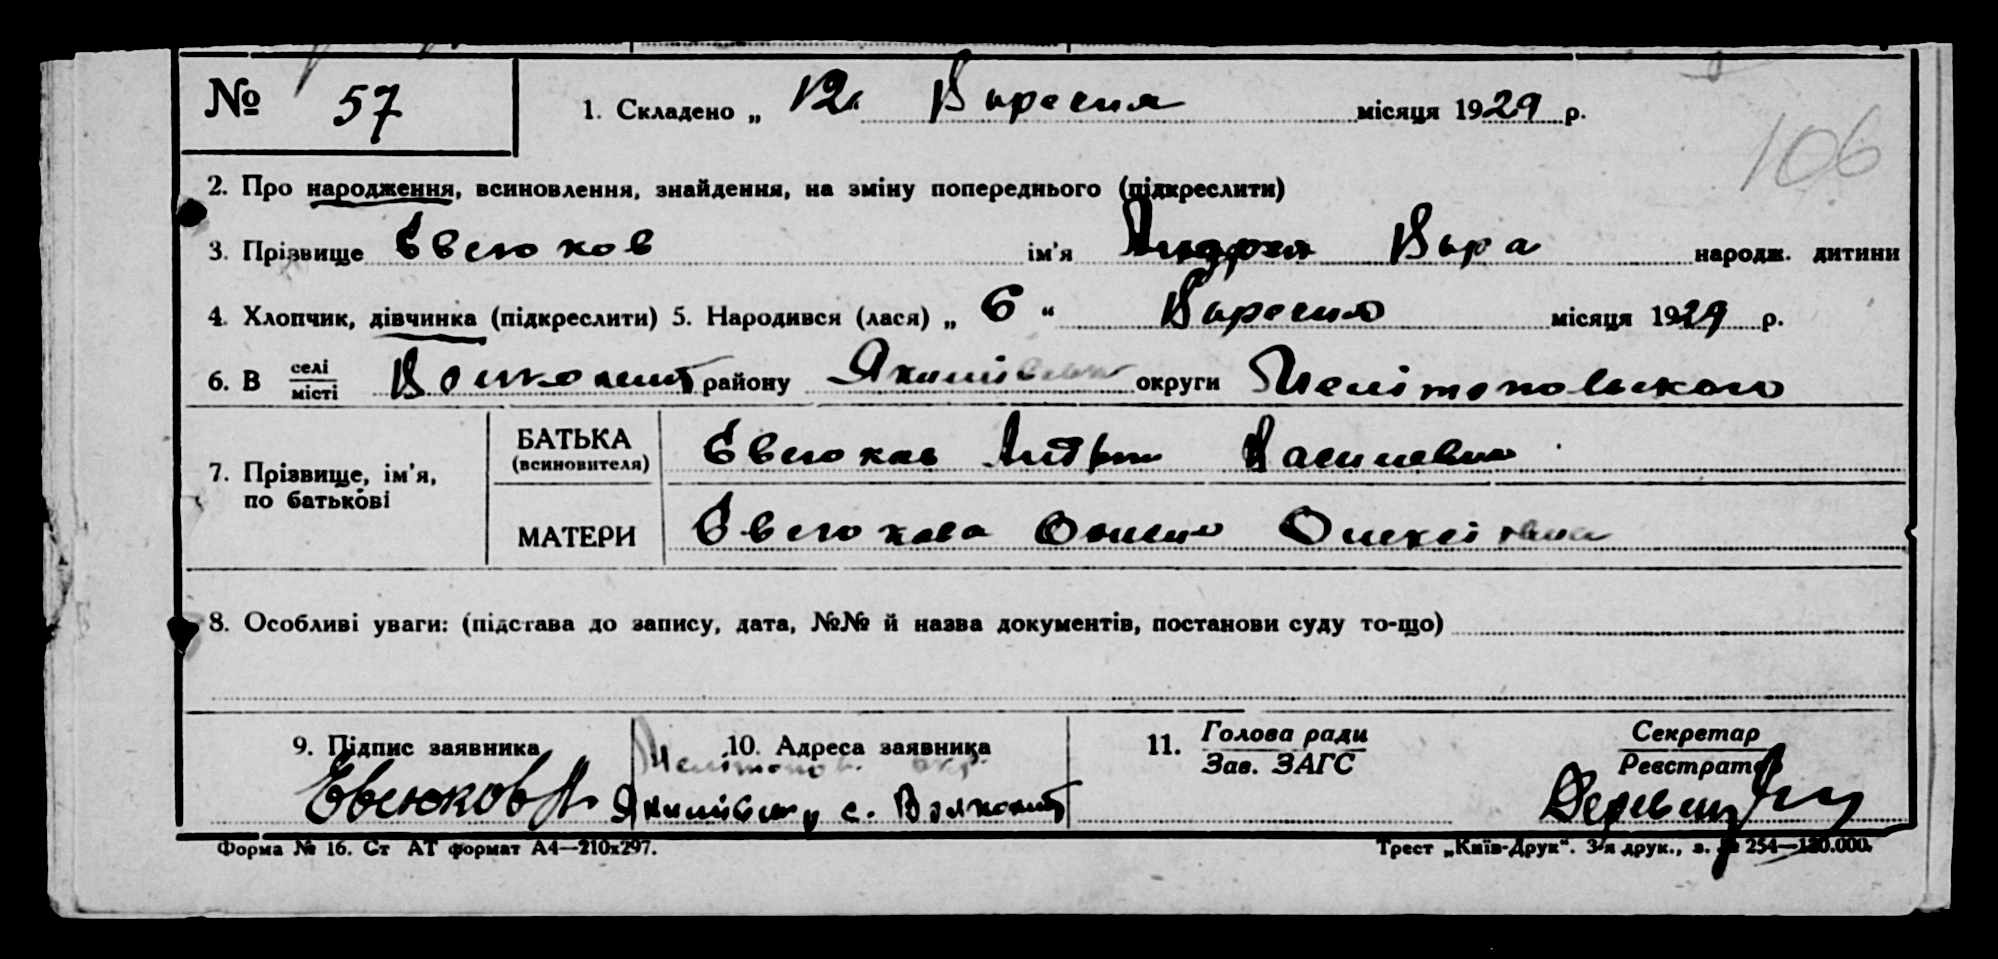 № 57 1. Складено „ 12 Вересня місяця 1929 р.
106
2. Про народження, всиновлення, знайдення, на зміну попереднього (підкреслити)
3. Прізвище Евсюков ім'я Вера народж. дитини
4. Хлопчик, дівчинка (підкреслити) 5. Народився (лася) „ 6 “ Вересня місяця 1929 р.
6. В селі місті району округи Мелітопольского
7. Прізвище, ім'я, по батькові
БАТЬКА (всиновителя) Евсюков Василевич
МАТЕРИ Евсюкова
8. Особливі уваги: (підстава до запису, дата, №№ й назва документів, постанови суду то-що)
9. Підпис заявника 10. Адреса заявника 11. Голова ради Зав. ЗАГС Секретар Реєстратор
Мелітопов. окр.
Евсюков с.
Форма № 16. Ст АТ формат А4—210х297. Трест „Київ-Друк“. 3-я друк., з. № 254—120.000.